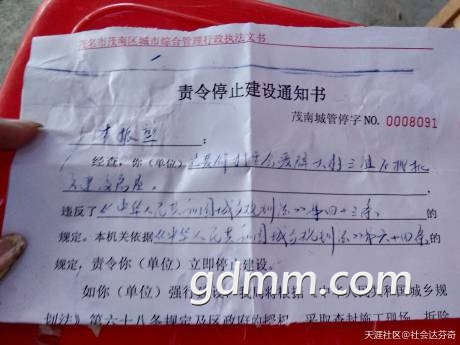 茂名市茂南区城市综合管理行政执法文书
责令停止建设通知书
茂南城管停字 NO. 0008091
李振 :
经查，你（单位）
违反了《中华人民共和国城乡规划法》第四十三条 的
规定。本机关依据《中华人民共和国城乡规划法》第六十四条 的
规定，责令你（单位）立即停止建设。
如你（单位）强行 《中华人民共和国城乡规
划法》第六十八条规定及区政府的授权，采取查封施工现场、拆除
gdmm.com
天涯社区@社会达芬奇